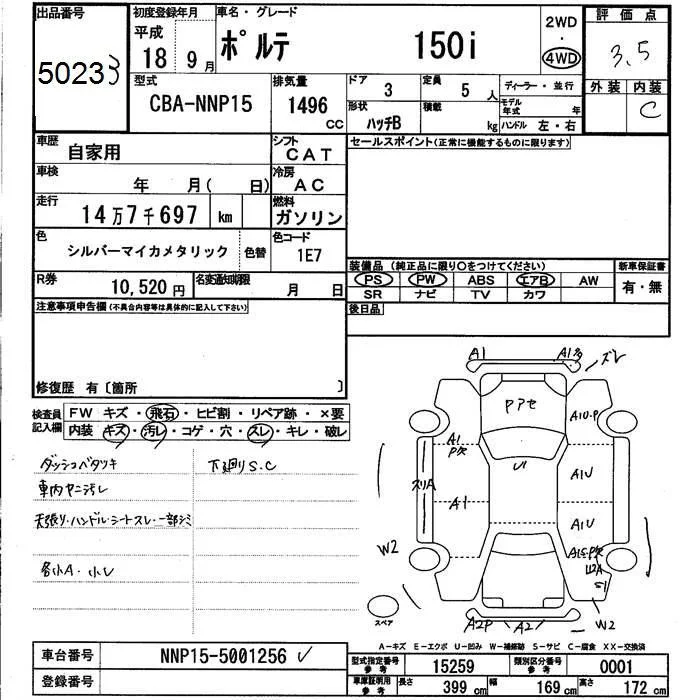 出品番号
50233
初度登録年月
平成
18年9月
車名・グレード
ポルテ 150i
2WD
4WD
評価点
3.5
外装 内装
C
型式
CBA-NNP15
排気量
1496
CC
ドア
3
定員
5人
形状
ハッチB
積載
kg
ディーラー・並行
モデル年式 年
ハンドル 左・右
車歴
自家用
シフト
CAT
車検
年 月( 日)
冷房
AC
走行
14万7千697 km
燃料
ガソリン
色
シルバーマイカメタリック
色替
色コード
1E7
R券
10,520円
名変通知期限
月 日
セールスポイント(正常に機能するものに限ります)
装備品 (純正品に限り○をつけてください)
PS PW ABS エアB AW
SR ナビ TV カワ
新車保証書
有・無
後日品
注意事項申告欄(不具合内容等は具体的に記入して下さい)
修復歴 有〔箇所 〕
検査員記入欄
FW キズ・飛石・ヒビ割・リペア跡・×要
内装 キズ・汚レ・コゲ・穴・スレ・キレ・破レ
ダッシュベタツキ
下廻りS.C
車内ヤニ汚レ
天張り・ハンドル・シートスレ・一部シミ
各小A・小U
A1
ズレ
Pアセ
A10・P
A1
P穴
U1
A1U
スリA
A1
A1U
W2
W2
A2P
A2
スペア
A-キズ E-エクボ U-凹み W-補修跡 S-サビ C-腐食 XX-交換済
車台番号
NNP15-5001256
登録番号
型式指定番号
参考
15259
類別区分番号
参考
0001
車庫証明用
参考
長さ 399 cm
幅 169 cm
高さ 172 cm